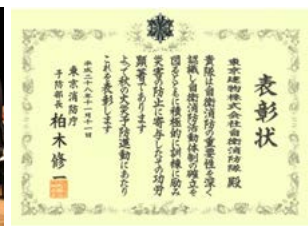 表彰状
東京建物株式会社自衛消防隊 殿
貴隊は自衛消防の重要性を深く
認識し自衛消防活動体制の確立を
図るとともに積極的に訓練に励み
災害の防止に寄与したその功労
顕著であります
よって秋の火災予防運動にあたり
これを表彰します
平成二十八年十一月十一日
東京消防庁
予防部長 柏木修一